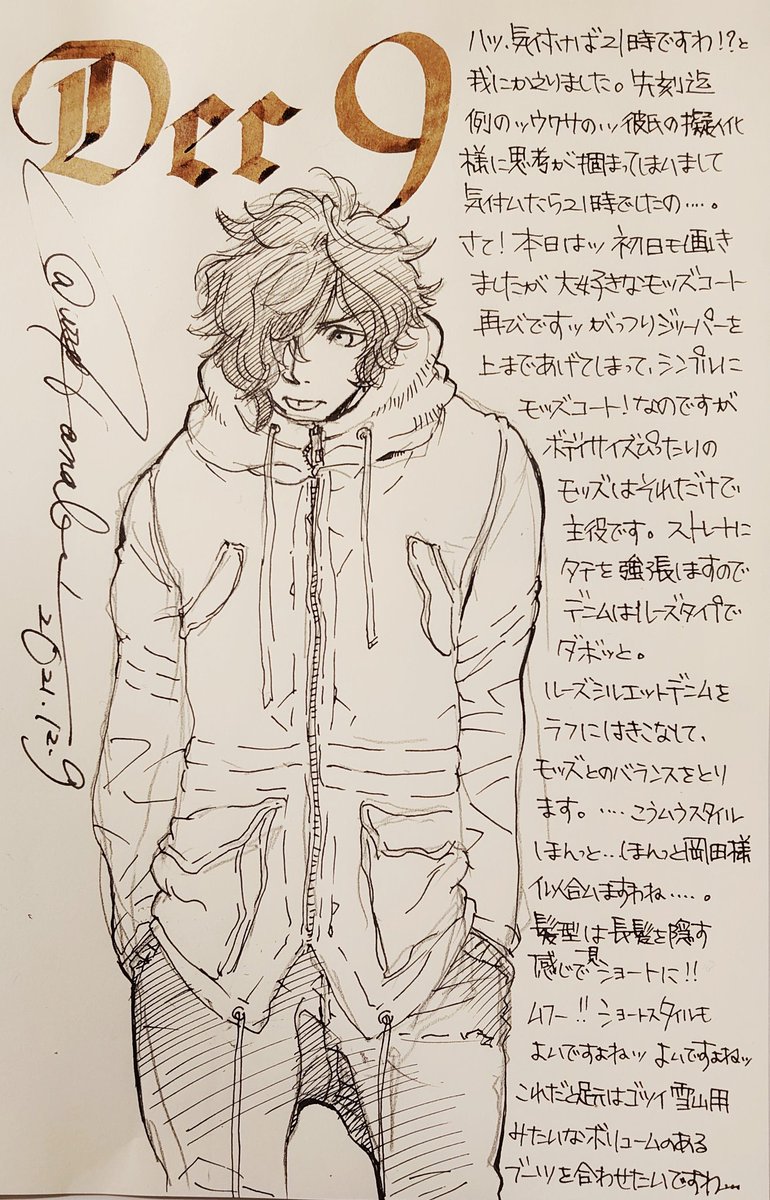 Dec 9
ハッ、気付けば21時ですわ!?と
我にかえりました。先刻迄
例のッウワサのッ彼氏の擬人化
様に思考が掴まってしまいまして
気付いたら21時でしたの…。
さて!本日はッ初日も画き
ましたが大好きなモッズコート
再びですッがっつりジッパーを
上まであげてしまって、シンプルに
モッズコート!なのですが
ボディサイズぴったりの
モッズはそれだけで
主役です。ストレートに
タテを強張しますので
デニムはルーズタイプで
ダボッと。
ルーズシルエットデニムを
ラフにはきこなして、
モッズとのバランスをとり
ます。…こういうスタイル
ほんっと…ほんっと岡田様
似合いますわね…。
髪型は長髪を隠す
感じで見ショートに!!
ムフー!!ショートスタイルも
よいですよねッよいですよねッ
これだと足元はゴツイ雪山用
みたいなボリュームのある
ブーツを合わせたいですわ…
2021.12.9